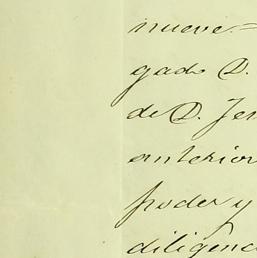 nueve=
gado D.
de D. Jen
anterior
poder y
diligenc